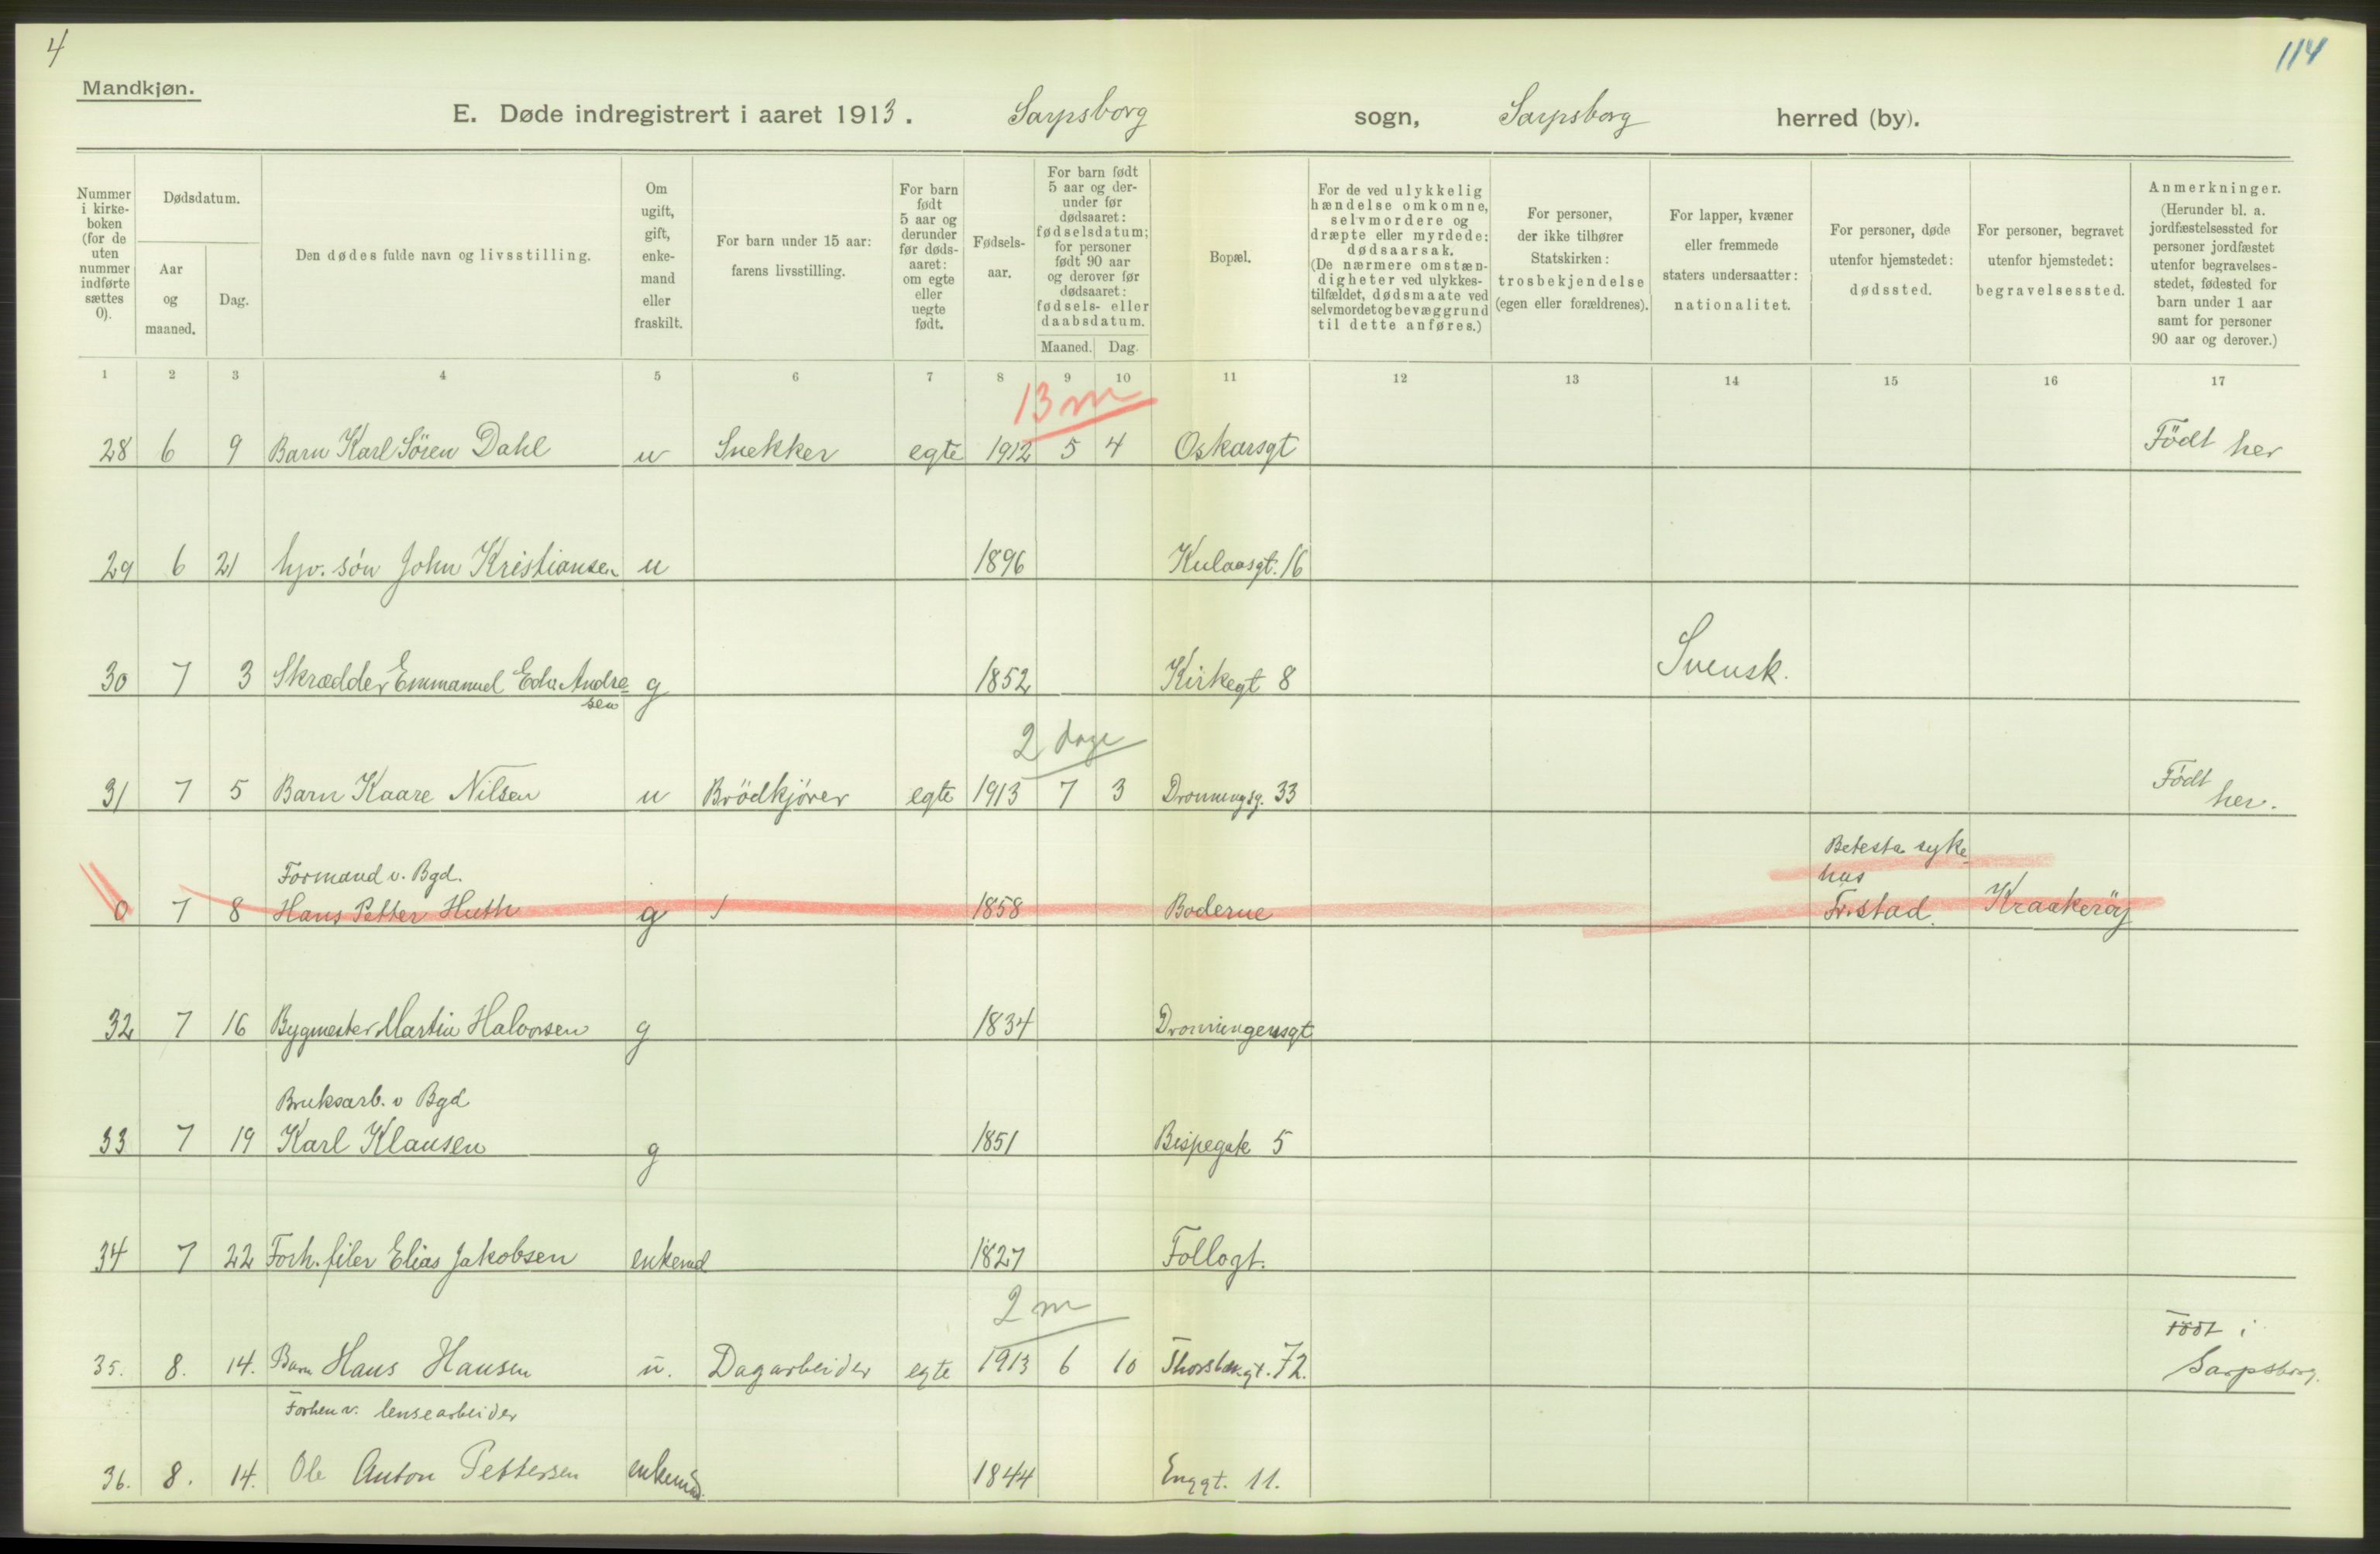 4
114
Mandkjøn.
E. Døde indregistrert i aaret 1913. Sarpsborg sogn, Sarpsborg herred (by).
Nummer i kirke- boken (for de uten nummer indførte sættes 0).
Dødsdatum.
Aar og maaned.
Dag.
Den dødes fulde navn og livsstilling.
Om ugift, gift, enke- mand eller fraskilt.
For barn under 15 aar: farens livsstilling.
For barn født 5 aar og derunder før døds- aaret: om egte eller uegte født.
Fødsels- aar.
For barn født 5 aar og der- under før dødsaaret: fødselsdatum; for personer født 90 aar og derover før dødsaaret: fødsels- eller daabsdatum.
Maaned. Dag.
Bopæl.
For de ved ulykkelig hændelse omkomne, selvmordere og dræpte eller myrdede: dødsaarsak. (De nærmere omstæn- digheter ved ulykkes- tilfældet, dødsmaate ved selvmordet og bevæggrund til dette anføres.)
For personer, der ikke tilhører Statskirken: trosbekjendelse (egen eller forældrenes).
For lapper, kvæner eller fremmede staters undersaatter: nationalitet.
For personer, døde utenfor hjemstedet: dødssted.
For personer, begravet utenfor hjemstedet: begravelsessted.
Anmerkninger. (Herunder bl. a. jordfæstelsessted for personer jordfæstet utenfor begravelses- stedet, fødested for barn under 1 aar samt for personer 90 aar og derover.)
1 2 3 4 5 6 7 8 9 10 11 12 13 14 15 16 17
13 m
28 6 9 Barn Karl Sören Dahl u Snekker egte 1912 5 4 Oskarsgt Födt her
29 6 21 hjv. sön John Kristiansen u 1896 Kulaasgt. 16
30 7 3 Skrædder Emmanuel Edv. Andre- g 1852 Kirkegt 8 Svensk.
sen
2 dage
31 7 5 Barn Kaare Nilsen u Brödkjörer egte 1913 7 3 Dronningsg. 33 Födt
her.
Formand v. Bgd. Betesta syke-
hus
0 7 8 Hans Petter Huth g 1858 Boderne Fr.stad. Kraakeröy
32 7 16 Bygmester Martin Halvorsen g 1834 Dronningensgt
Bruksarb. v Bgd
33 7 19 Karl Klausen g 1851 Bispegate 5
34 7 22 Forh. filer Elias Jakobsen enkemd 1827 Follogt.
2 m
Födt i
35. 8. 14. Barn Hans Hansen u. Dagarbeider egte 1913 6 10 72. Sarpsborg.
Forhen v. lensearbeider
36. 8. 14. Ole Anton Pettersen enkemd. 1844 Enggt. 11.